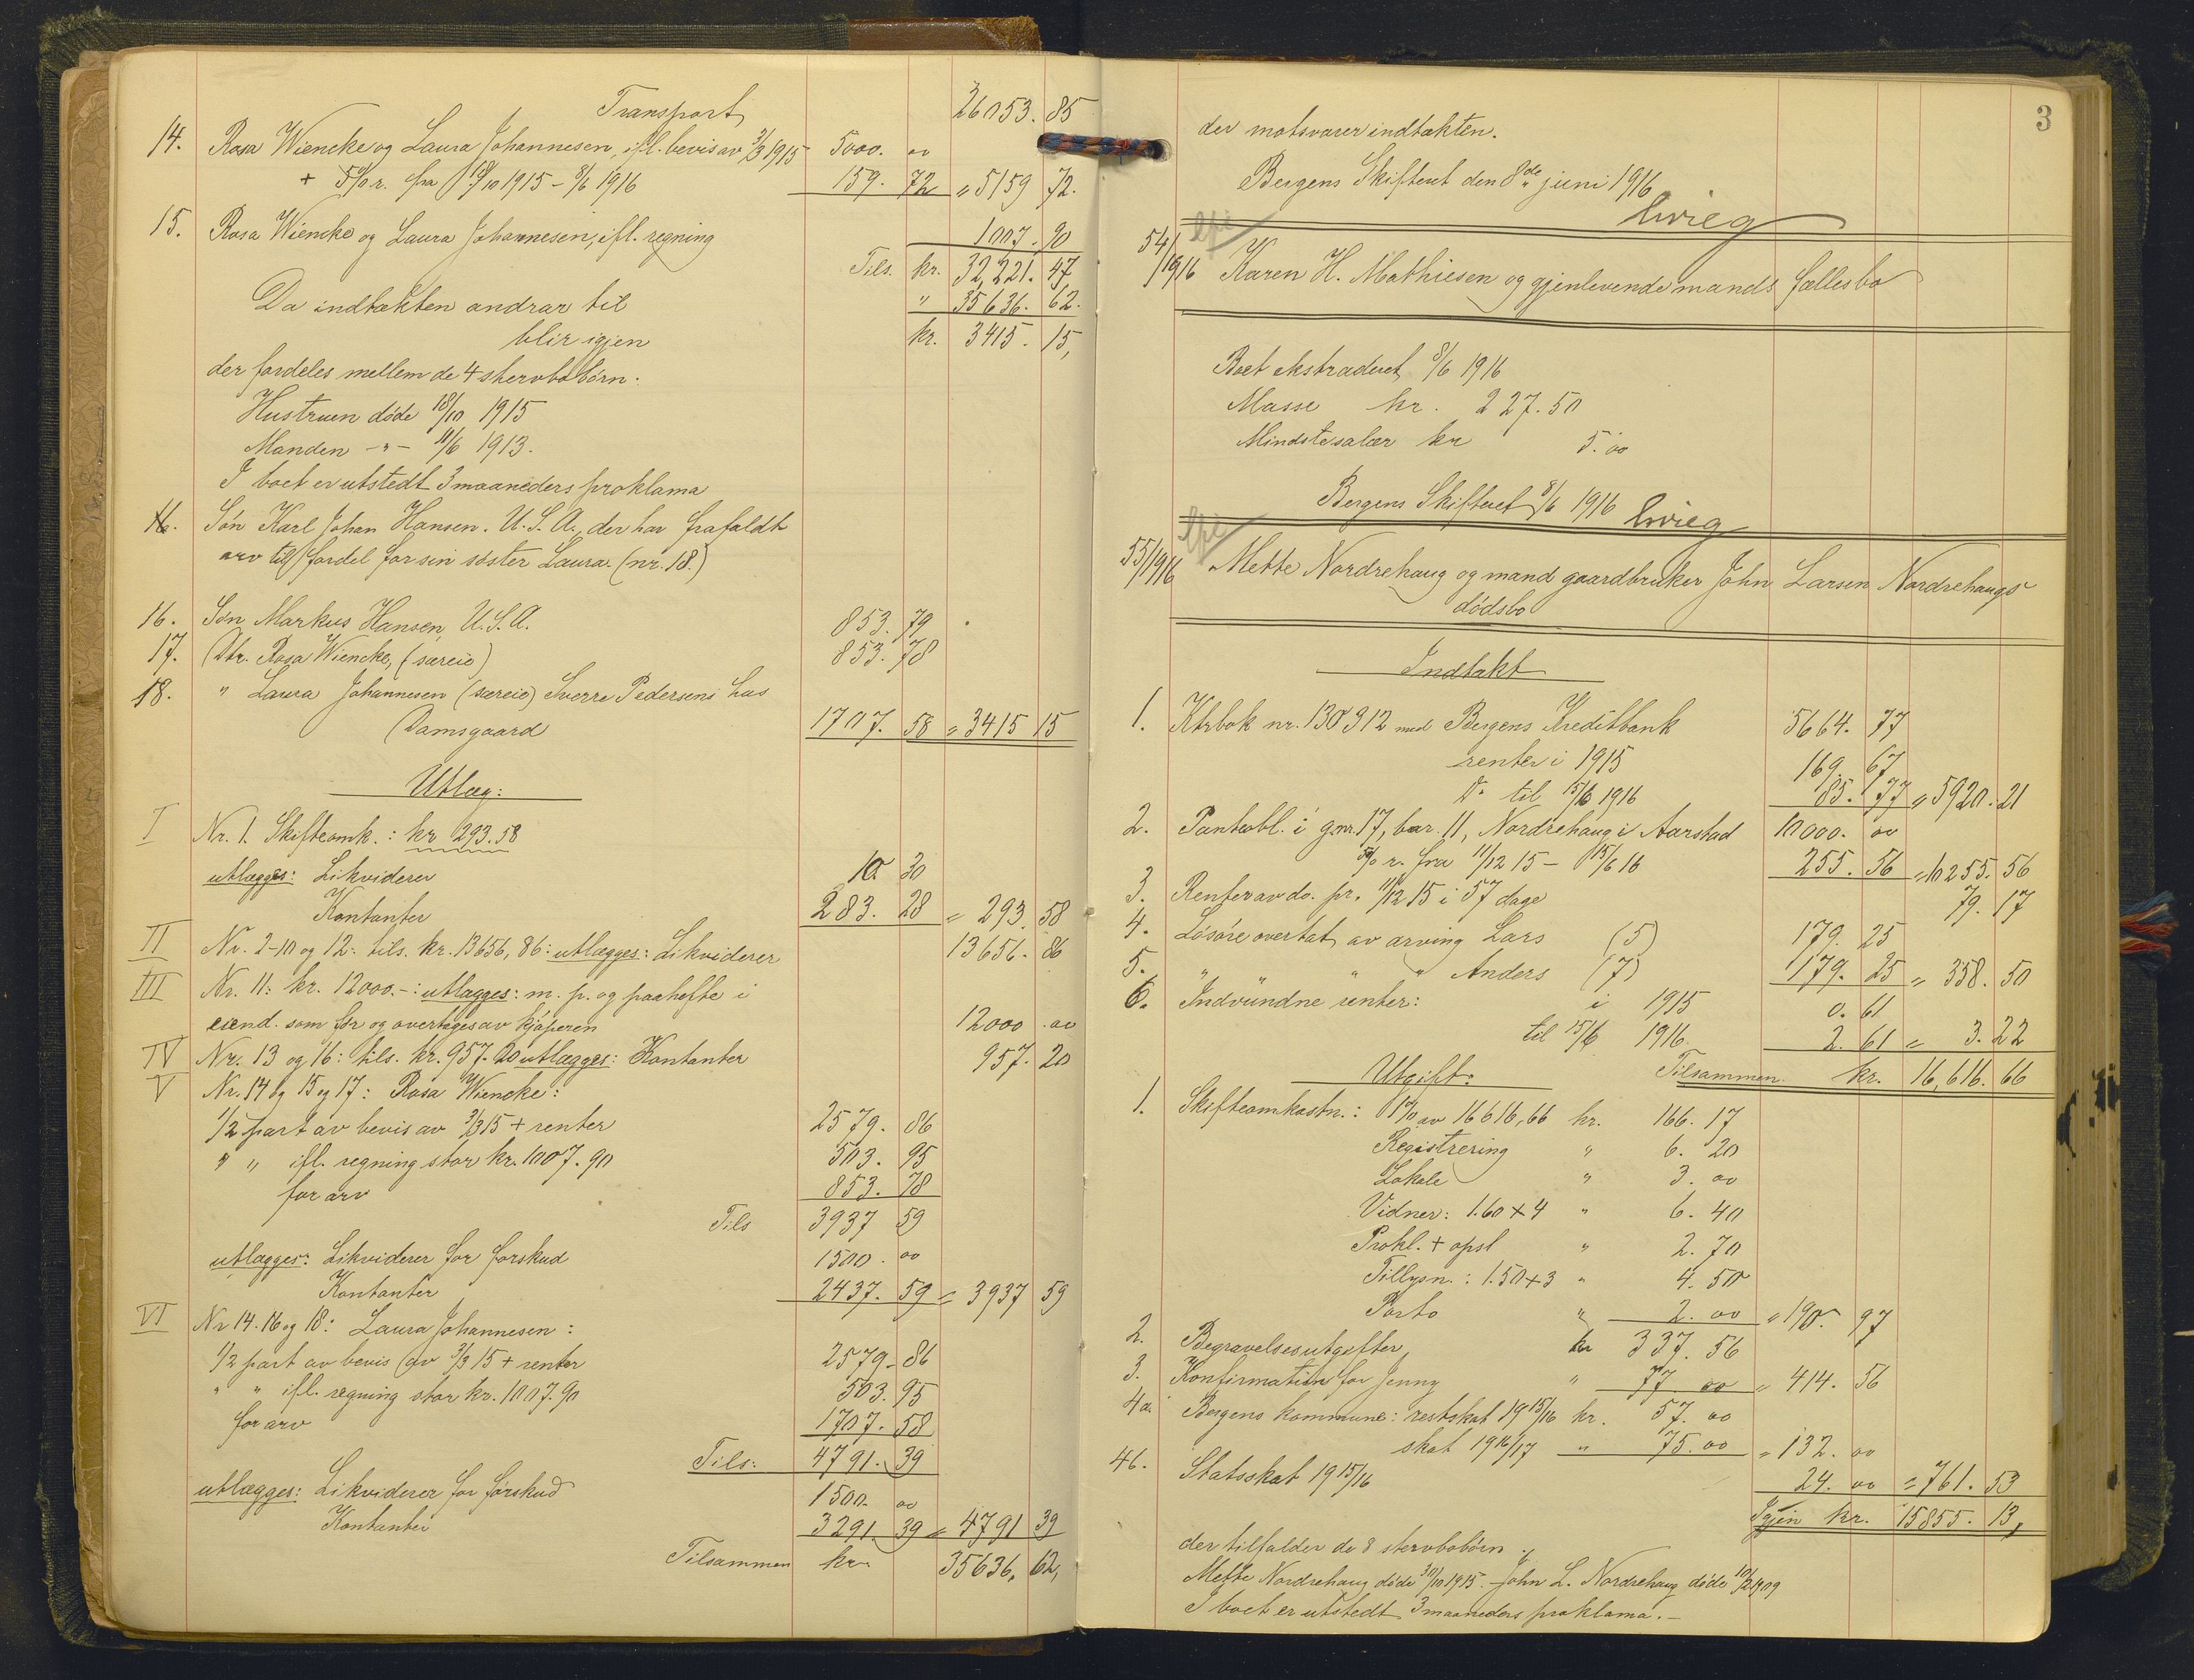 Transport 26053. 85
14. Rosa Wiencke og Laura Johannesen, ifl. bevis av 3/3 1915 5000. oo
+ 5% r. fra 18/10 1915 - 8/6 1916 159. 72 = 5159 72.
15. Rosa Wiencke og Laura Johannesen, ifl. regning 1007. 90
Tils. kr. 32,221. 47
Da indtækten andrar til " 35636. 62.
blir igjen kr. 3415. 15,
der fordeles mellem de 4 stervbobörn.
Hustruen døde 18/10 1915
Manden - " - 11/6 1913.
I boet er utstedt 3 maaneders proklama
16. Søn Karl Johan Hansen. U.S.A., der har frafaldt
arv til fordel for sin søster Laura. (nr. 18.)
16. Søn Markus Hansen, U.S.A. 853. 79
17. Dtr. Rosa Wiencke, (særeie) 853. 78
18. " Laura Johannesen (særeie) Sverre Pedersens hus
Damsgaard 1707. 58 = 3415 15
Utlæg:
I Nr. 1. Skifteomk.: kr 293.58
utlægges: Likviderer 10 30
Kontanter 283. 28 = 293. 58
II Nr. 2-10 og 12: tils. kr. 13656, 86: utlægges: Likviderer 13656. 86
III Nr. 11: kr. 12000.-: utlægges: m. p. og paahefte i
eiend. som før og overtages av kjøperen 12000. oo
IV Nr. 13 og 16: tils. kr. 957. 20 utlægges: Kontanter 957. 20
V Nr. 14 og 15 og 17: Rosa Wiencke:
1/2 part av bevis av 3/3 15 + renter 2579. 86
" " ifl. regning stor kr. 1007. 90 503. 95
for arv 853. 78
Tils 3937 59
utlægges: Likviderer for forskud 1500. oo
Kontanter 2437. 59 = 3937 59
VI Nr 14. 16 og 18: Laura Johannesen:
1/2 part av bevis av 3/3 15 + renter 2579. 86
" " ifl. regning stor kr. 1007. 90 503. 95
for arv 1707. 58
Tils: 4791. 39
utlægges: Likviderer for forskud 1500. oo
Kontanter 3291. 39 = 4791 39
Tilsammen kr. 35636, 62,
3
der motsvarer indtækten.
Bergens Skifteret den 8de juni 1916
Grieg
54/1916 Karen H. Mathiesen og gjenlevende mands fællesbo
Boet ekstraderet 8/6 1916
Masse kr. 227. 50
Mindstesalær kr 5. oo
Bergens Skifteret 8/6 1916 Grieg
55/1916 Mette Nordrehaug og mand gaardbruker John Larsen Nordrehaugs
dødsbo
Indtækt
1. Ktrbok nr. 130312 med Bergens Kreditbank 5664. 77
renter i 1915 169. 67
Do til 15/6 1916 85. 77 = 5920. 21
2. Panteobl. i gnr. 17, bnr. 11, Nordrehaug i Aarstad 10000. oo
5% r. fra 11/12 15 - 15/6 16 255. 56 = 10255. 56
3. Renter av do. pr. 11/12 15 i 57 dage 79. 17
4. Løsøre overtat av arving Lars (5) 179. 25
5. " " " " Anders (7) 179. 25 = 358. 50
6. Indvundne renter: i 1915 0. 61
til 15/6 1916 2. 61 = 3. 22
Tilsammen. kr. 16,616. 66
Utgift:
1. Skifteomkostn.: 1% av 16616,66 kr. 166. 17
Registrering " 6. 20
Lokale " 3. oo
Vidner: 1.60 x 4 " 6. 40
Prokl. + opsl " 2. 70
Tillysn.: 1.50 x 3 " 4. 50
Porto " 2. oo = 190. 97
2. Begravelsesutgifter, kr 337. 56
3. Konfirmation for Jenny " 77. oo = 414. 56
4a. Bergens kommune: restskat 1915/16 kr. 57. oo
skat 1916/17 " 75. oo = 132. oo
4b. Statsskat 1915/16 24. oo = 761. 53
Igjen kr. 15855. 13,
der tilfalder de 8 stervbobörn
Mette Nordrehaug døde 30/10 1915. John L. Nordrehaug døde 10/2 1909
I boet er utstedt 3 maaneders proklama. -